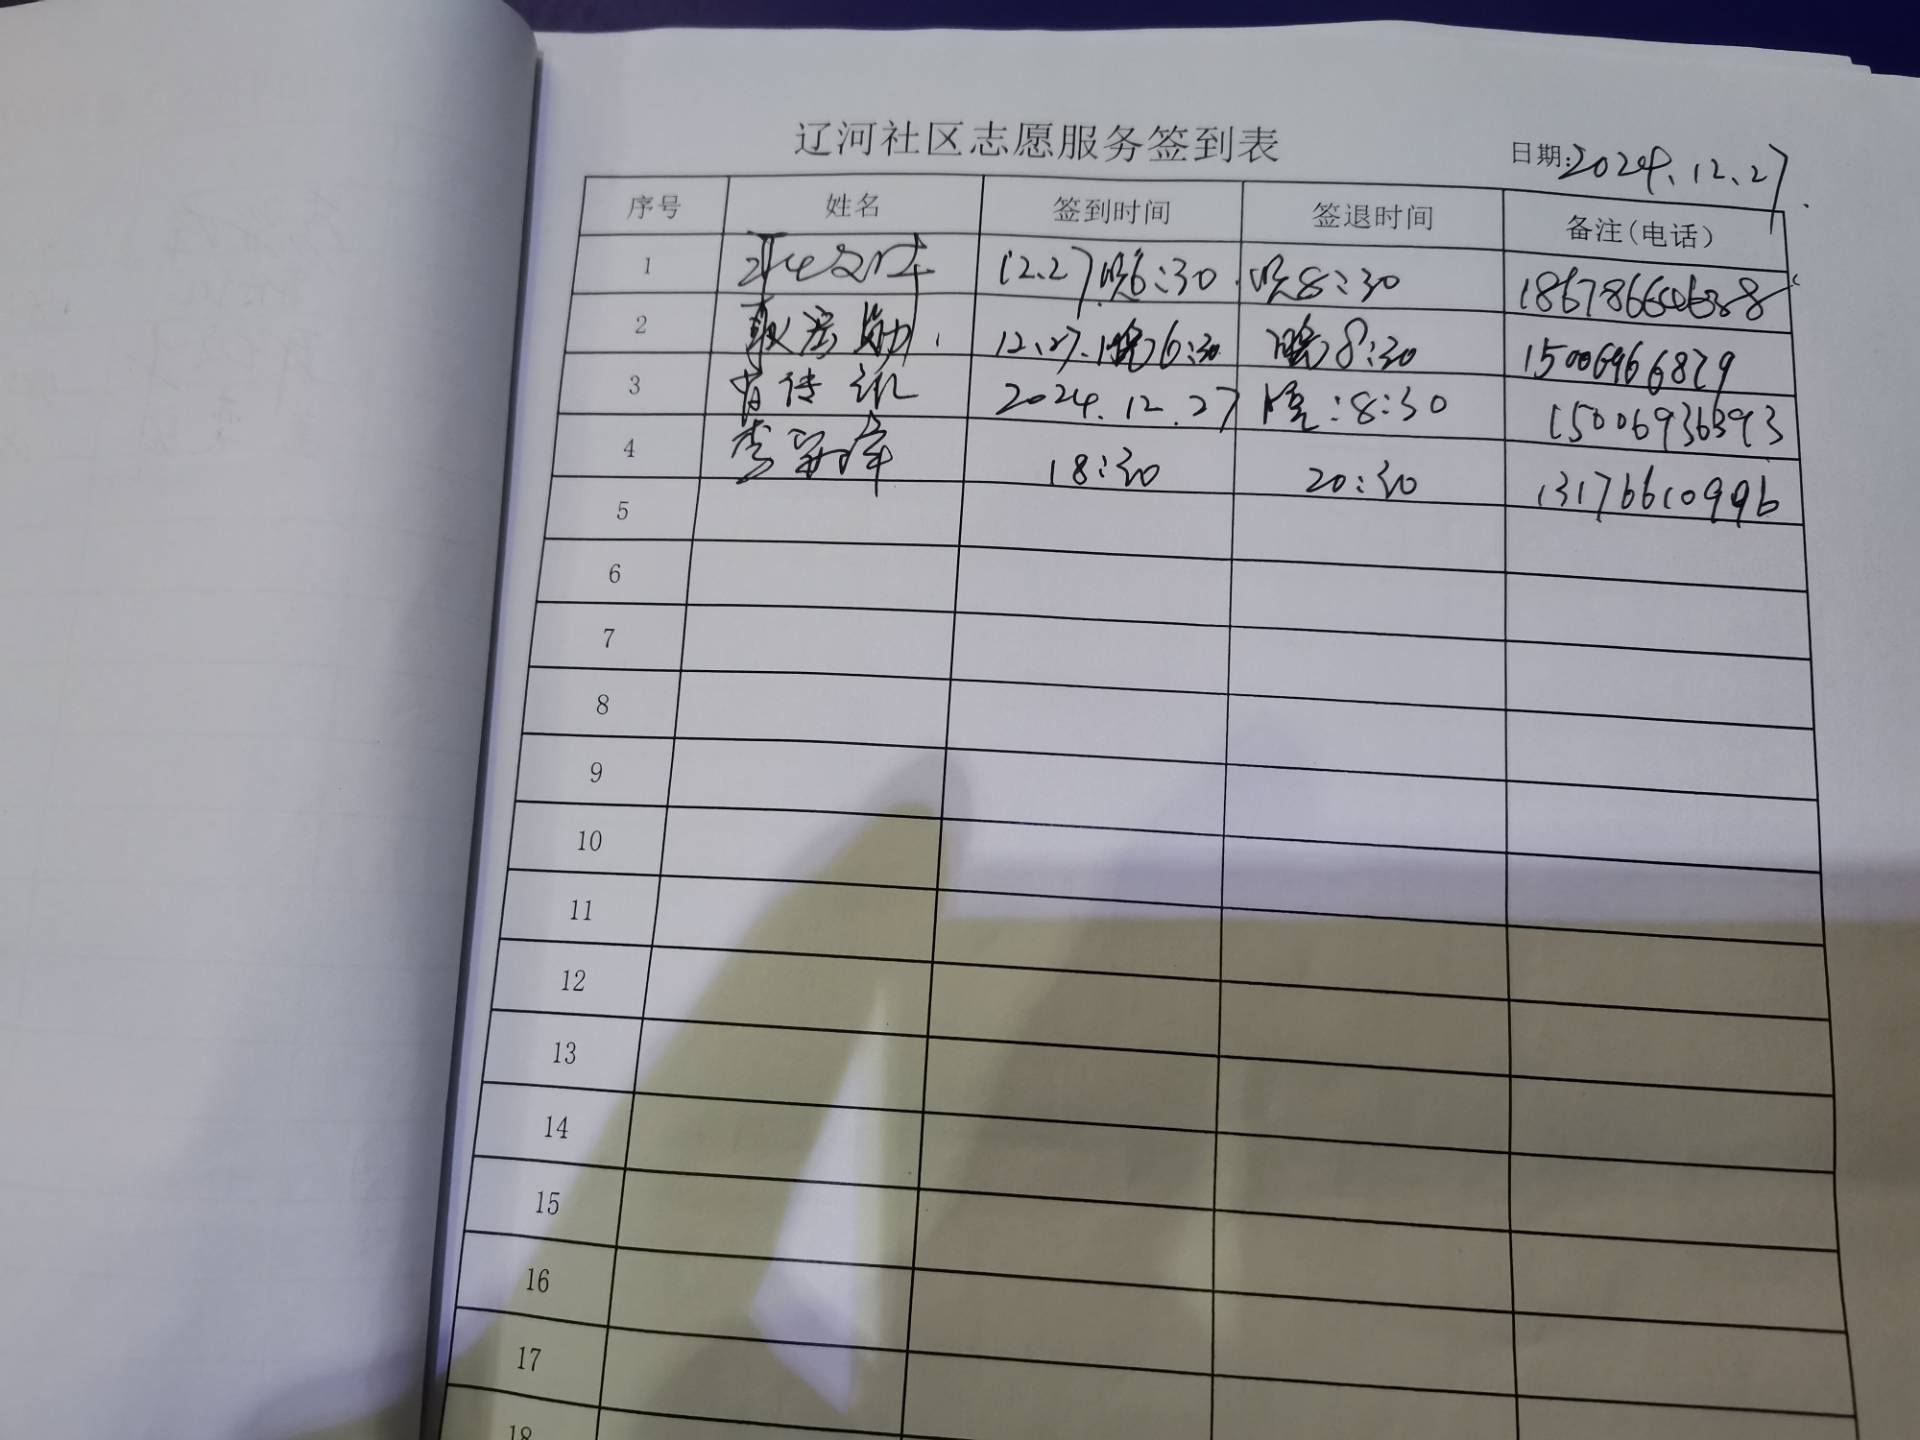 辽河社区志愿服务签到表
日期:2024.12.27.
序号 姓名 签到时间 签退时间 备注(电话)
1 12.27晚6:30 晚8:30
2 12.27.晚6:30 晚8:30 15006966829
3 2024.12.27 晚:8:30 15006936393
4 李 18:30 20:30 13176610996
5
6
7
8
9
10
11
12
13
14
15
16
17
18